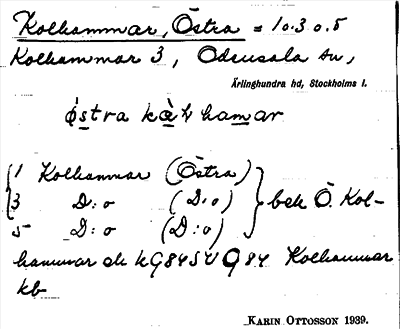 Kolhammar, Östra = 1o.3 o.5
Kolhammar 3, Odensala sn,
Ärlinghundra hd, Stockholms l.
östra kàlhamar
{1 Kolhammar (Östra)
3 D:o (D:o) } bek Ö. Kol-
5 D:o (D:o)
hammar ek KG 84 SV G 84 Kolhammar
kb
KARIN OTTOSSON 1939.